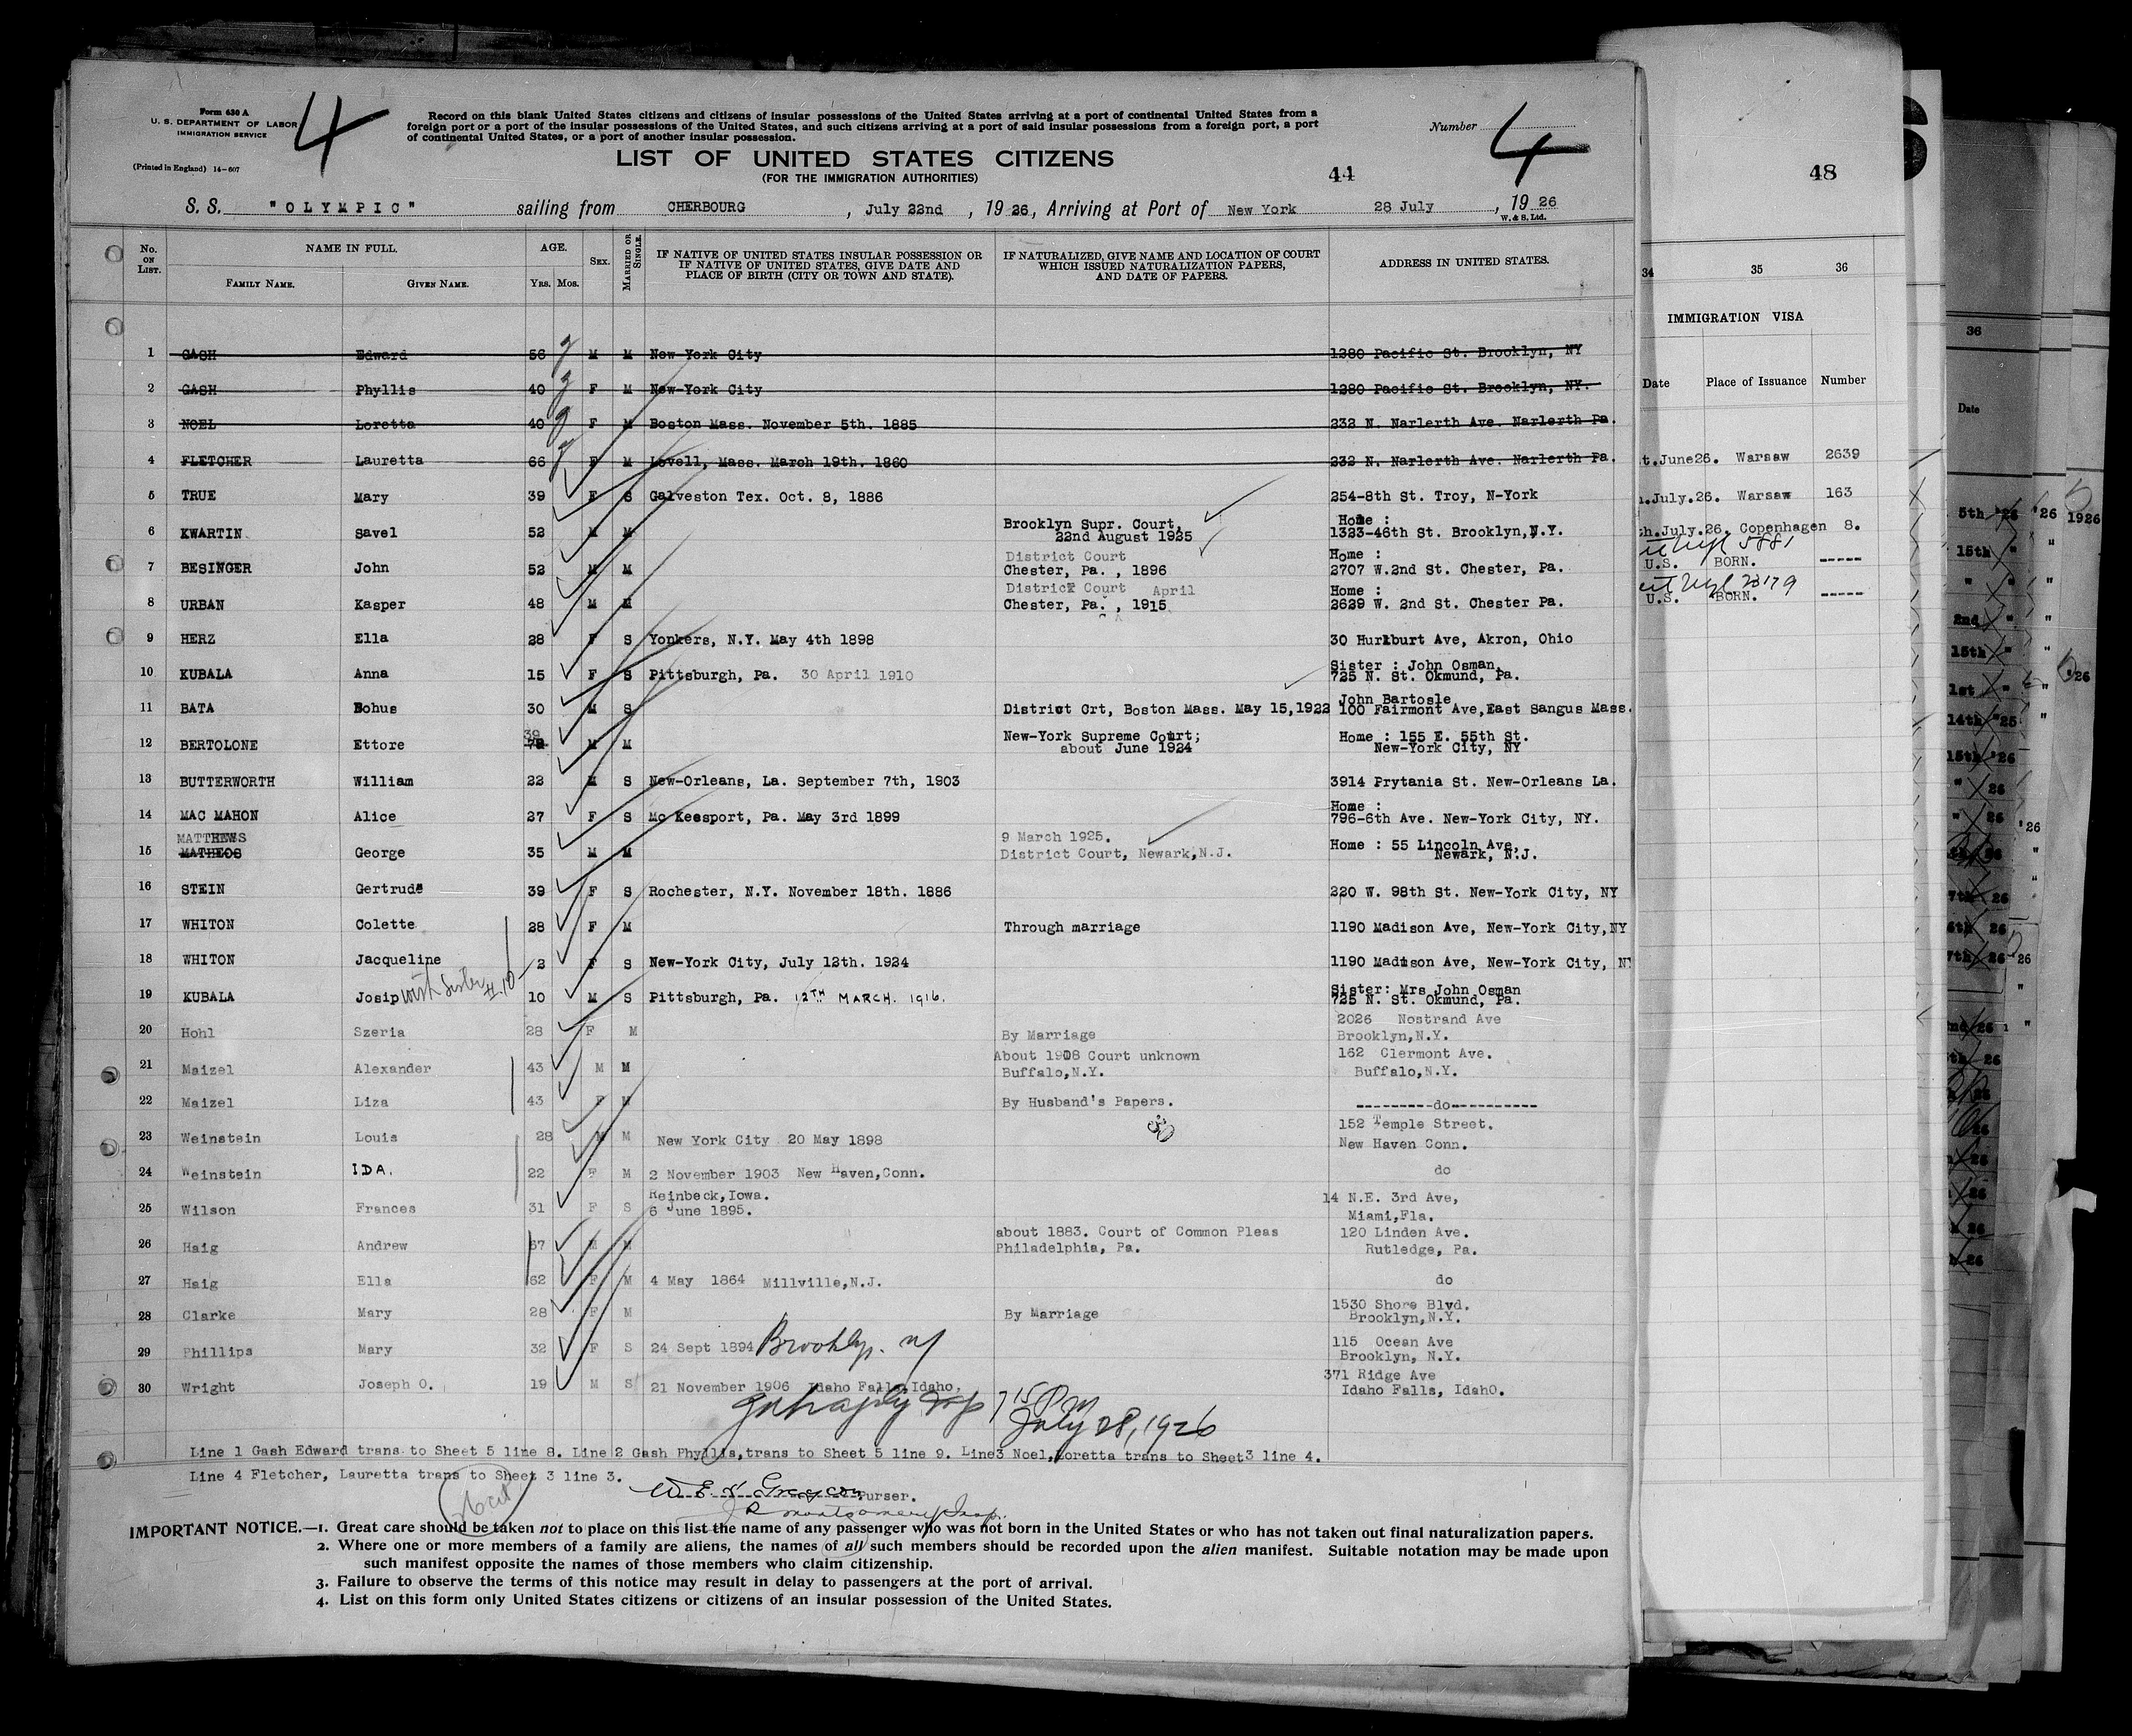 Form 630 A
U. S. DEPARTMENT OF LABOR
IMMIGRATION SERVICE
(Printed in England) 14-607
4
Record on this blank United States citizens and citizens of insular possessions of the United States arriving at a port of continental United States from a
foreign port or a port of the insular possessions of the United States, and such citizens arriving at a port of said insular possessions from a foreign port, a port
of continental United States, or a port of another insular possession.
Number
4
LIST OF UNITED STATES CITIZENS
(FOR THE IMMIGRATION AUTHORITIES)
44
S. S. "OLYMPIC" sailing from CHERBOURG, July 22nd, 1926, Arriving at Port of New York 28 July, 1926
W. & S. Ltd.
No. ON LIST.
NAME IN FULL.
FAMILY NAME. GIVEN NAME.
AGE.
YRS. MOS.
SEX.
MARRIED OR SINGLE.
IF NATIVE OF UNITED STATES INSULAR POSSESSION OR
IF NATIVE OF UNITED STATES, GIVE DATE AND
PLACE OF BIRTH (CITY OR TOWN AND STATE).
IF NATURALIZED, GIVE NAME AND LOCATION OF COURT
WHICH ISSUED NATURALIZATION PAPERS,
AND DATE OF PAPERS.
ADDRESS IN UNITED STATES.
1 GASH Edward 56 M M New-York City 1280 Pacific St. Brooklyn, NY
2 GASH Phyllis 40 F M New-York City 1280 Pacific St. Brooklyn, NY.
3 NOEL Loretta 40 F M Boston Mass. November 5th. 1885 232 N. Narlerth Ave. Narlerth Pa.
4 FLETCHER Lauretta 66 F M Lovell, Mass. March 19th. 1860 232 N. Narlerth Ave. Narlerth Pa.
5 TRUE Mary 39 F S Galveston Tex. Oct. 8, 1886 254-8th St. Troy, N-York
6 KWARTIN Savel 52 M M Brooklyn Supr. Court, 22nd August 1925 Home : 1323-46th St. Brooklyn, N.Y.
7 BESINGER John 52 M M District Court Chester, Pa. , 1896 Home : 2707 W.2nd St. Chester, Pa.
8 URBAN Kasper 48 M M District Court April Chester, Pa. , 1915 Home : 2629 W. 2nd St. Chester Pa.
9 HERZ Ella 28 F S Yonkers, N.Y. May 4th 1898 30 Hurlburt Ave, Akron, Ohio
10 KUBALA Anna 15 F S Pittsburgh, Pa. 30 April 1910 Sister : John Osman, 725 N. St. Okmund, Pa.
11 BATA Bohus 30 M S District Crt, Boston Mass. May 15,1922 John Bartosle 100 Fairmont Ave,East Sangus Mass.
12 BERTOLONE Ettore 39 M M New-York Supreme Court; about June 1924 Home : 155 E. 55th St. New-York City, NY
13 BUTTERWORTH William 22 M S New-Orleans, La. September 7th, 1903 3914 Prytania St. New-Orleans La.
14 MAC MAHON Alice 27 F S Mc Keesport, Pa. May 3rd 1899 Home : 796-6th Ave. New-York City, NY.
MATTHEWS
15 MATHEOS George 35 M M 9 March 1925. District Court, Newark,N.J. Home : 55 Lincoln Ave, Newark, N.J.
16 STEIN Gertrude 39 F S Rochester, N.Y. November 18th. 1886 220 W. 98th St. New-York City, NY
17 WHITON Colette 28 F M Through marriage 1190 Madison Ave, New-York City,NY
18 WHITON Jacqueline 2 F S New-York City, July 12th. 1924 1190 Madison Ave, New-York City, NY
19 KUBALA Josip with Sister #10 10 M S Pittsburgh, Pa. 12TH MARCH. 1916. Sister: Mrs John Osman 725 N. St. Okmund, Pa.
20 Hohl Szeria 28 F M By Marriage 2026 Nostrand Ave Brooklyn,N.Y.
21 Maizel Alexander 43 M M About 1908 Court unknown Buffalo,N.Y. 162 Clermont Ave. Buffalo,N.Y.
22 Maizel Liza 43 F M By Husband's Papers. ---------do----------
30
23 Weinstein Louis 28 M M New York City 20 May 1898 152 Temple Street. New Haven Conn.
24 Weinstein IDA. 22 F M 2 November 1903 New Haven,Conn. do
25 Wilson Frances 31 F S Reinbeck,Iowa. 6 June 1895. 14 N.E. 3rd Ave, Miami,Fla.
26 Haig Andrew 67 M M about 1883. Court of Common Pleas Philadelphia, Pa. 120 Linden Ave. Rutledge, Pa.
27 Haig Ella 62 F M 4 May 1864 Millville,N.J. do
28 Clarke Mary 28 F M By Marriage 1530 Shore Blvd. Brooklyn,N.Y.
29 Phillips Mary 32 F S 24 Sept 1894 Brooklyn. ny 115 Ocean Ave Brooklyn, N.Y.
30 Wright Joseph O. 19 M S 21 November 1906 Idaho Falls,Idaho. 371 Ridge Ave Idaho Falls, IdahO.
7 15 Pm
July 28, 1926
Line 1 Gash Edward trans to Sheet 5 line 8. Line 2 Gash Phyllis,trans to Sheet 5 line 9. Line3 Noel,Loretta trans to Sheet3 line 4.
Line 4 Fletcher, Lauretta trans to Sheet 3 line 3.
Purser.
IMPORTANT NOTICE.—1. Great care should be taken not to place on this list the name of any passenger who was not born in the United States or who has not taken out final naturalization papers.
2. Where one or more members of a family are aliens, the names of all such members should be recorded upon the alien manifest. Suitable notation may be made upon
such manifest opposite the names of those members who claim citizenship.
3. Failure to observe the terms of this notice may result in delay to passengers at the port of arrival.
4. List on this form only United States citizens or citizens of an insular possession of the United States.
48
34 35 36
IMMIGRATION VISA
Date Place of Issuance Number
June26. Warsaw 2639
July.26. Warsaw 163
July.26. Copenhagen 8.
5881
U.S. BORN. -----
U.S. BORN. -----
36
Date